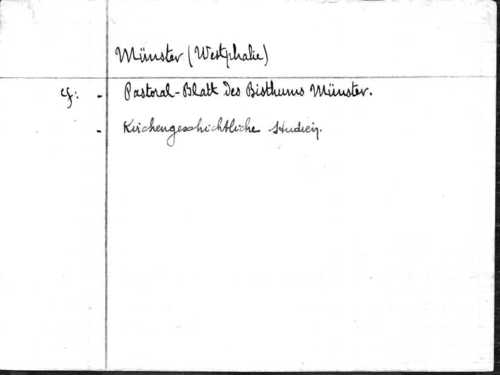 Münster (Westphalie)
cf: - Pastoral-Blatt des Bisthums Münster.
- Kirchengeschichtliche Studien.